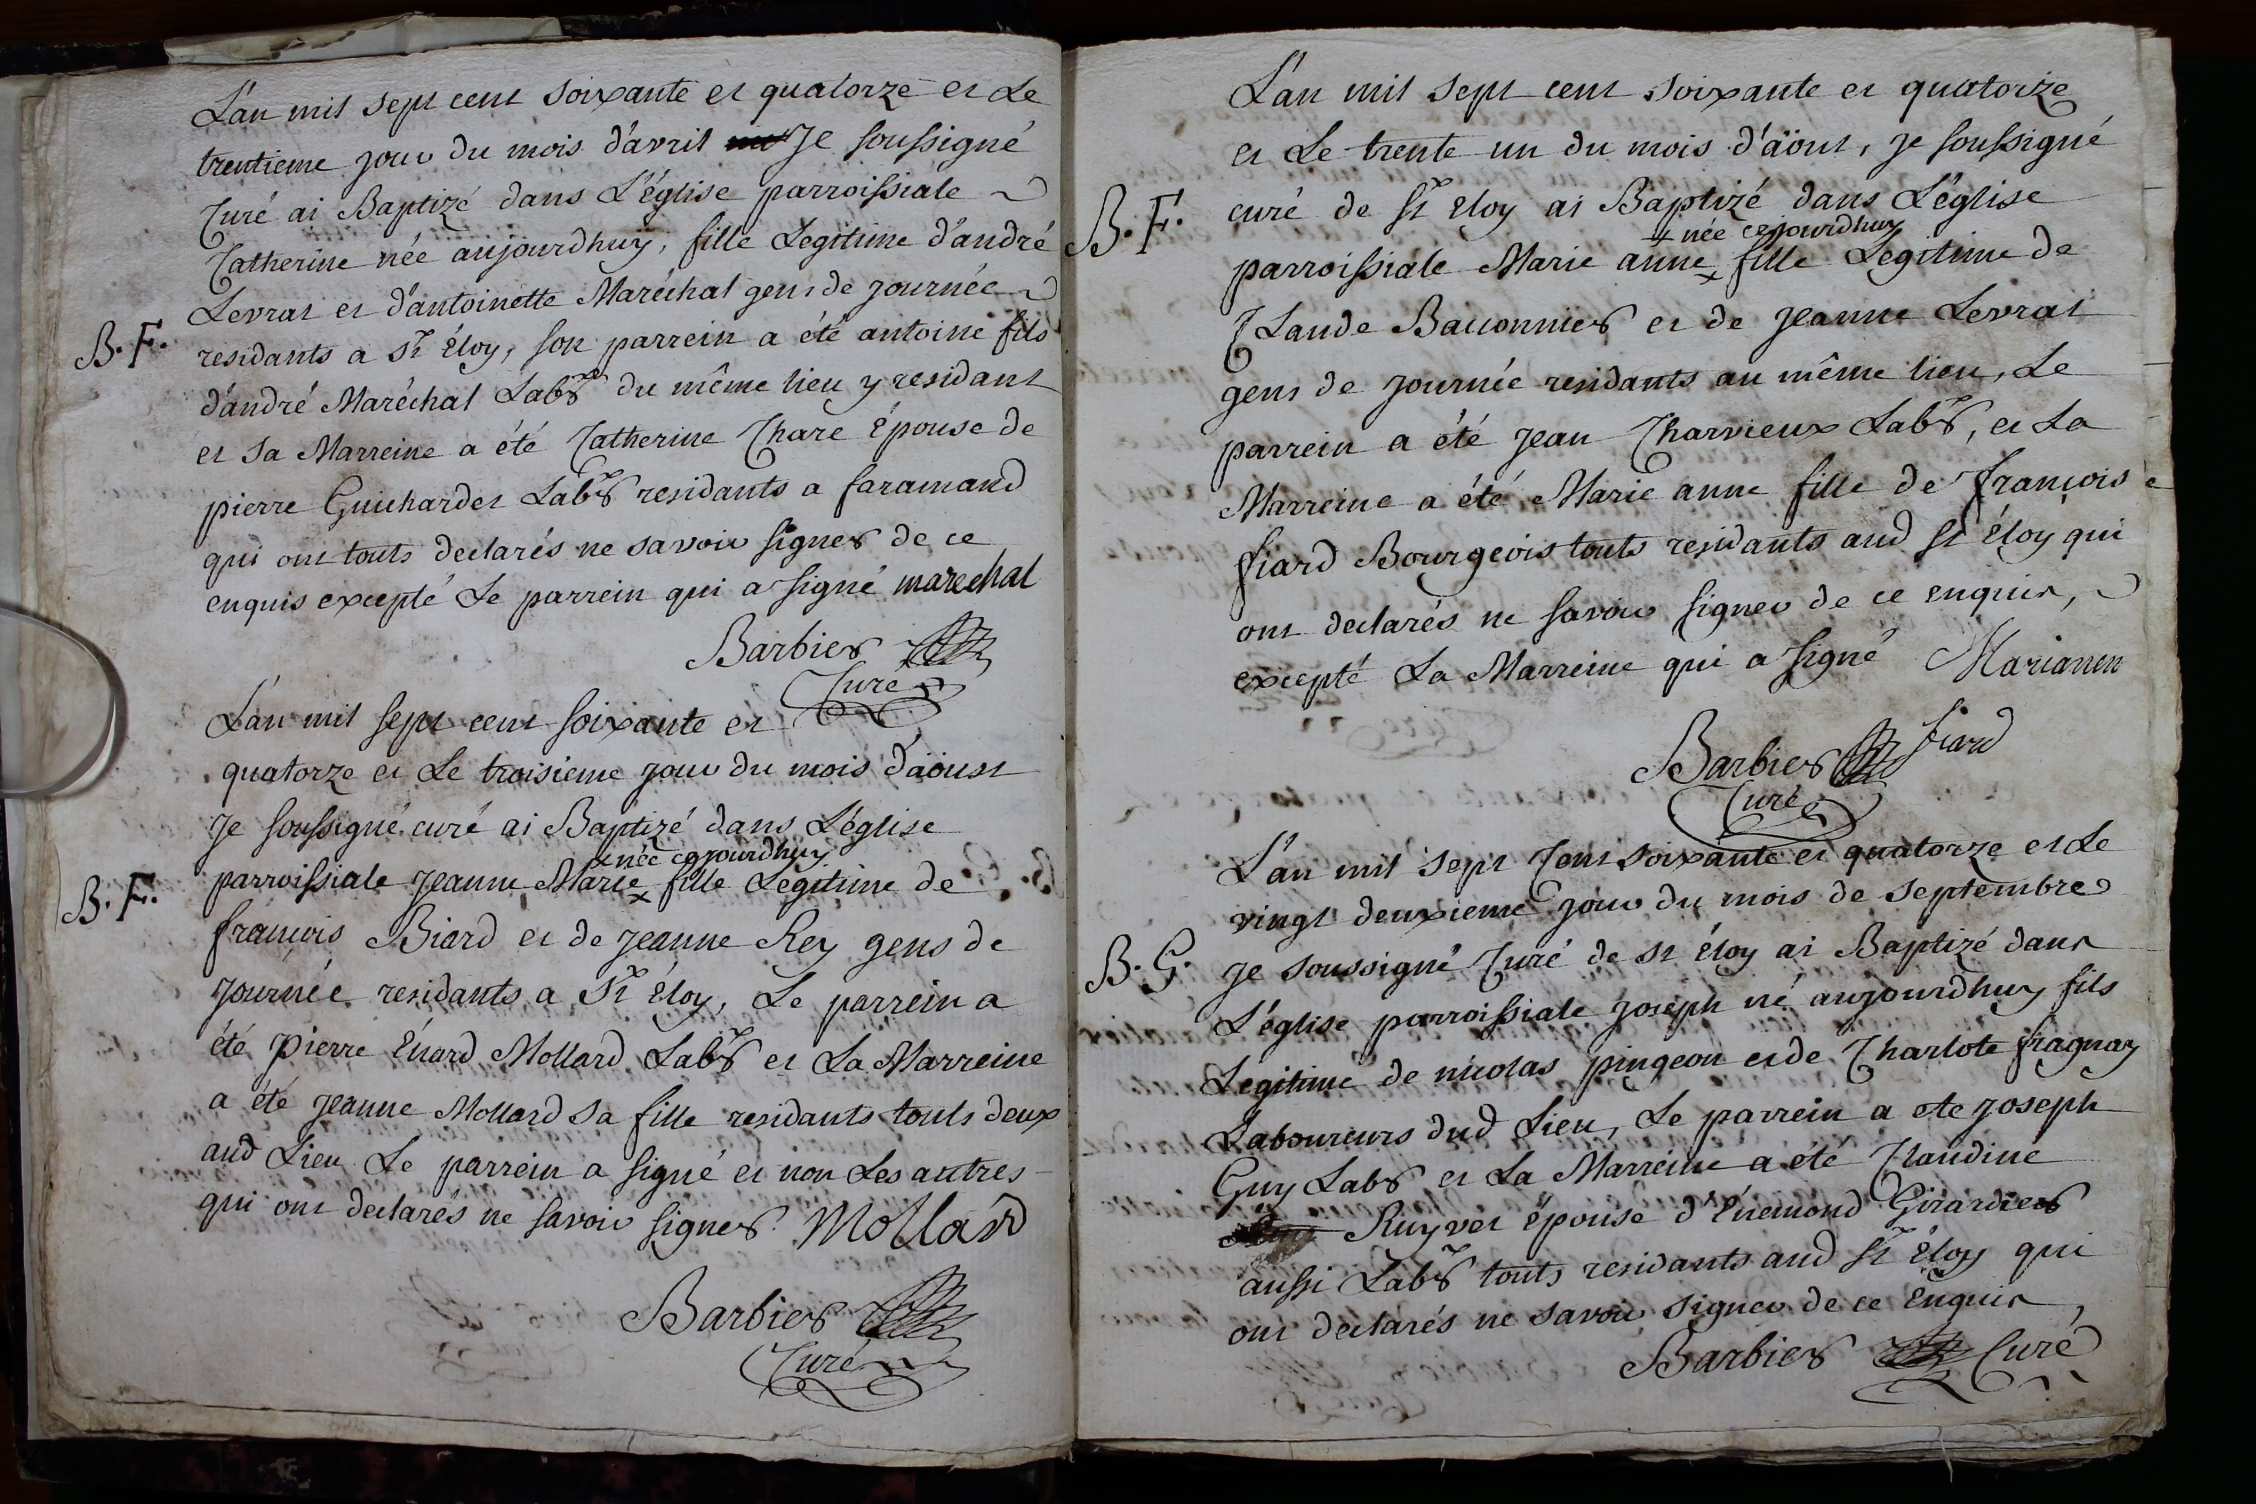 L'an mil sept cent soixante et quatorze et Le
trentieme jour du mois d'avril Je soussigné
Curé ai Baptizé dans L'église parroissiale
Catherine née aujourdhuy, fille Legitime d'andré
Levrat et d'antoinette Maréchal gens de journée
B. F.
residants a St Éloy, son parrein a été antoine fils
d'andré Maréchal Labr du même lieu y residant
et sa Marreine a été Catherine Chare Épouse de
pierre Guichardet Labrs residants a faramand
qui ont touts declarés ne savoir signer de ce
enquis excepté Le parrein qui a signé marechal
Barbier
Curé
L'an mil sept cent soixante et
quatorze et Le troisieme jour du mois d'aöust
Je soussigné curé ai Baptizé dans L'église
x née cejourdhuy
parroissiale jeanne Marie x fille Legitime de
B. F.
françois Biard et de jeanne Rey gens de
journée residants a St Éloy, Le parrein a
été pierre Énard Mollard Labr et La Marreine
a été jeanne Mollard sa fille residants touts deux
aud Lieu Le parrein a signé et non Les autres
qui ont declarés ne savoir signer. Mollard
Barbier
Curé
L'an mil sept cent soixante et quatorze
et Le trente un du mois d'aöut, je soussigné
B. F.
curé de St Eloy ai Baptizé dans L'église
x née cejourdhuy
parroissiale Marie anne x fille Legitime de
Claude Bauonnier et de jeanne Levrat
gens de journée residants au même lieu, Le
parrein a été jean Charvieux Labr, et La
Marreine a été Marie anne fille de françois
fiard Bourgeois touts residants aud St éloy qui
ont declarés ne savoir signer de ce enquis,
excepté La Marreine qui a signé Marianen
fiard
Barbier
Curé
L'an mil sept Cent soixante et quatorze et Le
vingt deuxieme jour du mois de septembre
B. G.
je soussigné Curé de St éloy ai Baptizé dans
L'église parroissiale joseph né aujourdhuy fils
Legitime de nicolas pingeon et de Charlote fragnay
Laboureurs dud Lieu, Le parrein a ete joseph
Guy Labr et La Marreine a été Claudine
Ruyvet épouse d'Énemond Girardier
aussi Labr touts residants aud St Éloy qui
ont declarés ne savoir signer de ce Enquis,
Barbier Curé